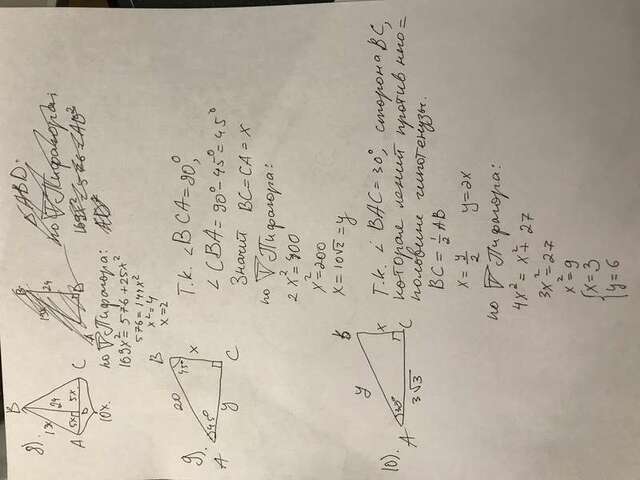 8).
B
13x
24
A
5x
5x
C
D
10x.
24
ΔABD:
по T Пифагора:
по T Пифагора:
169x² = 576 + 25x²
576 = 144x²
x² = 4
x = 2
9).
B
20
45°
x
A
45°
y
C
Т.к. ∠BCA = 90°,
∠CBA = 90° - 45° = 45°
Значит BC = CA = x
по T Пифагора:
2x² = 400
x² = 200
x = 10√2 = y
10).
B
y
x
A
30°
C
3√3
Т.к. ∠BAC = 30°, сторона BC,
которая лежит против него =
половине гипотенузы.
BC = ½ AB
x = y/2 y = 2x
по T Пифагора:
4x² = x² + 27
3x² = 27
x² = 9
{x = 3
y = 6